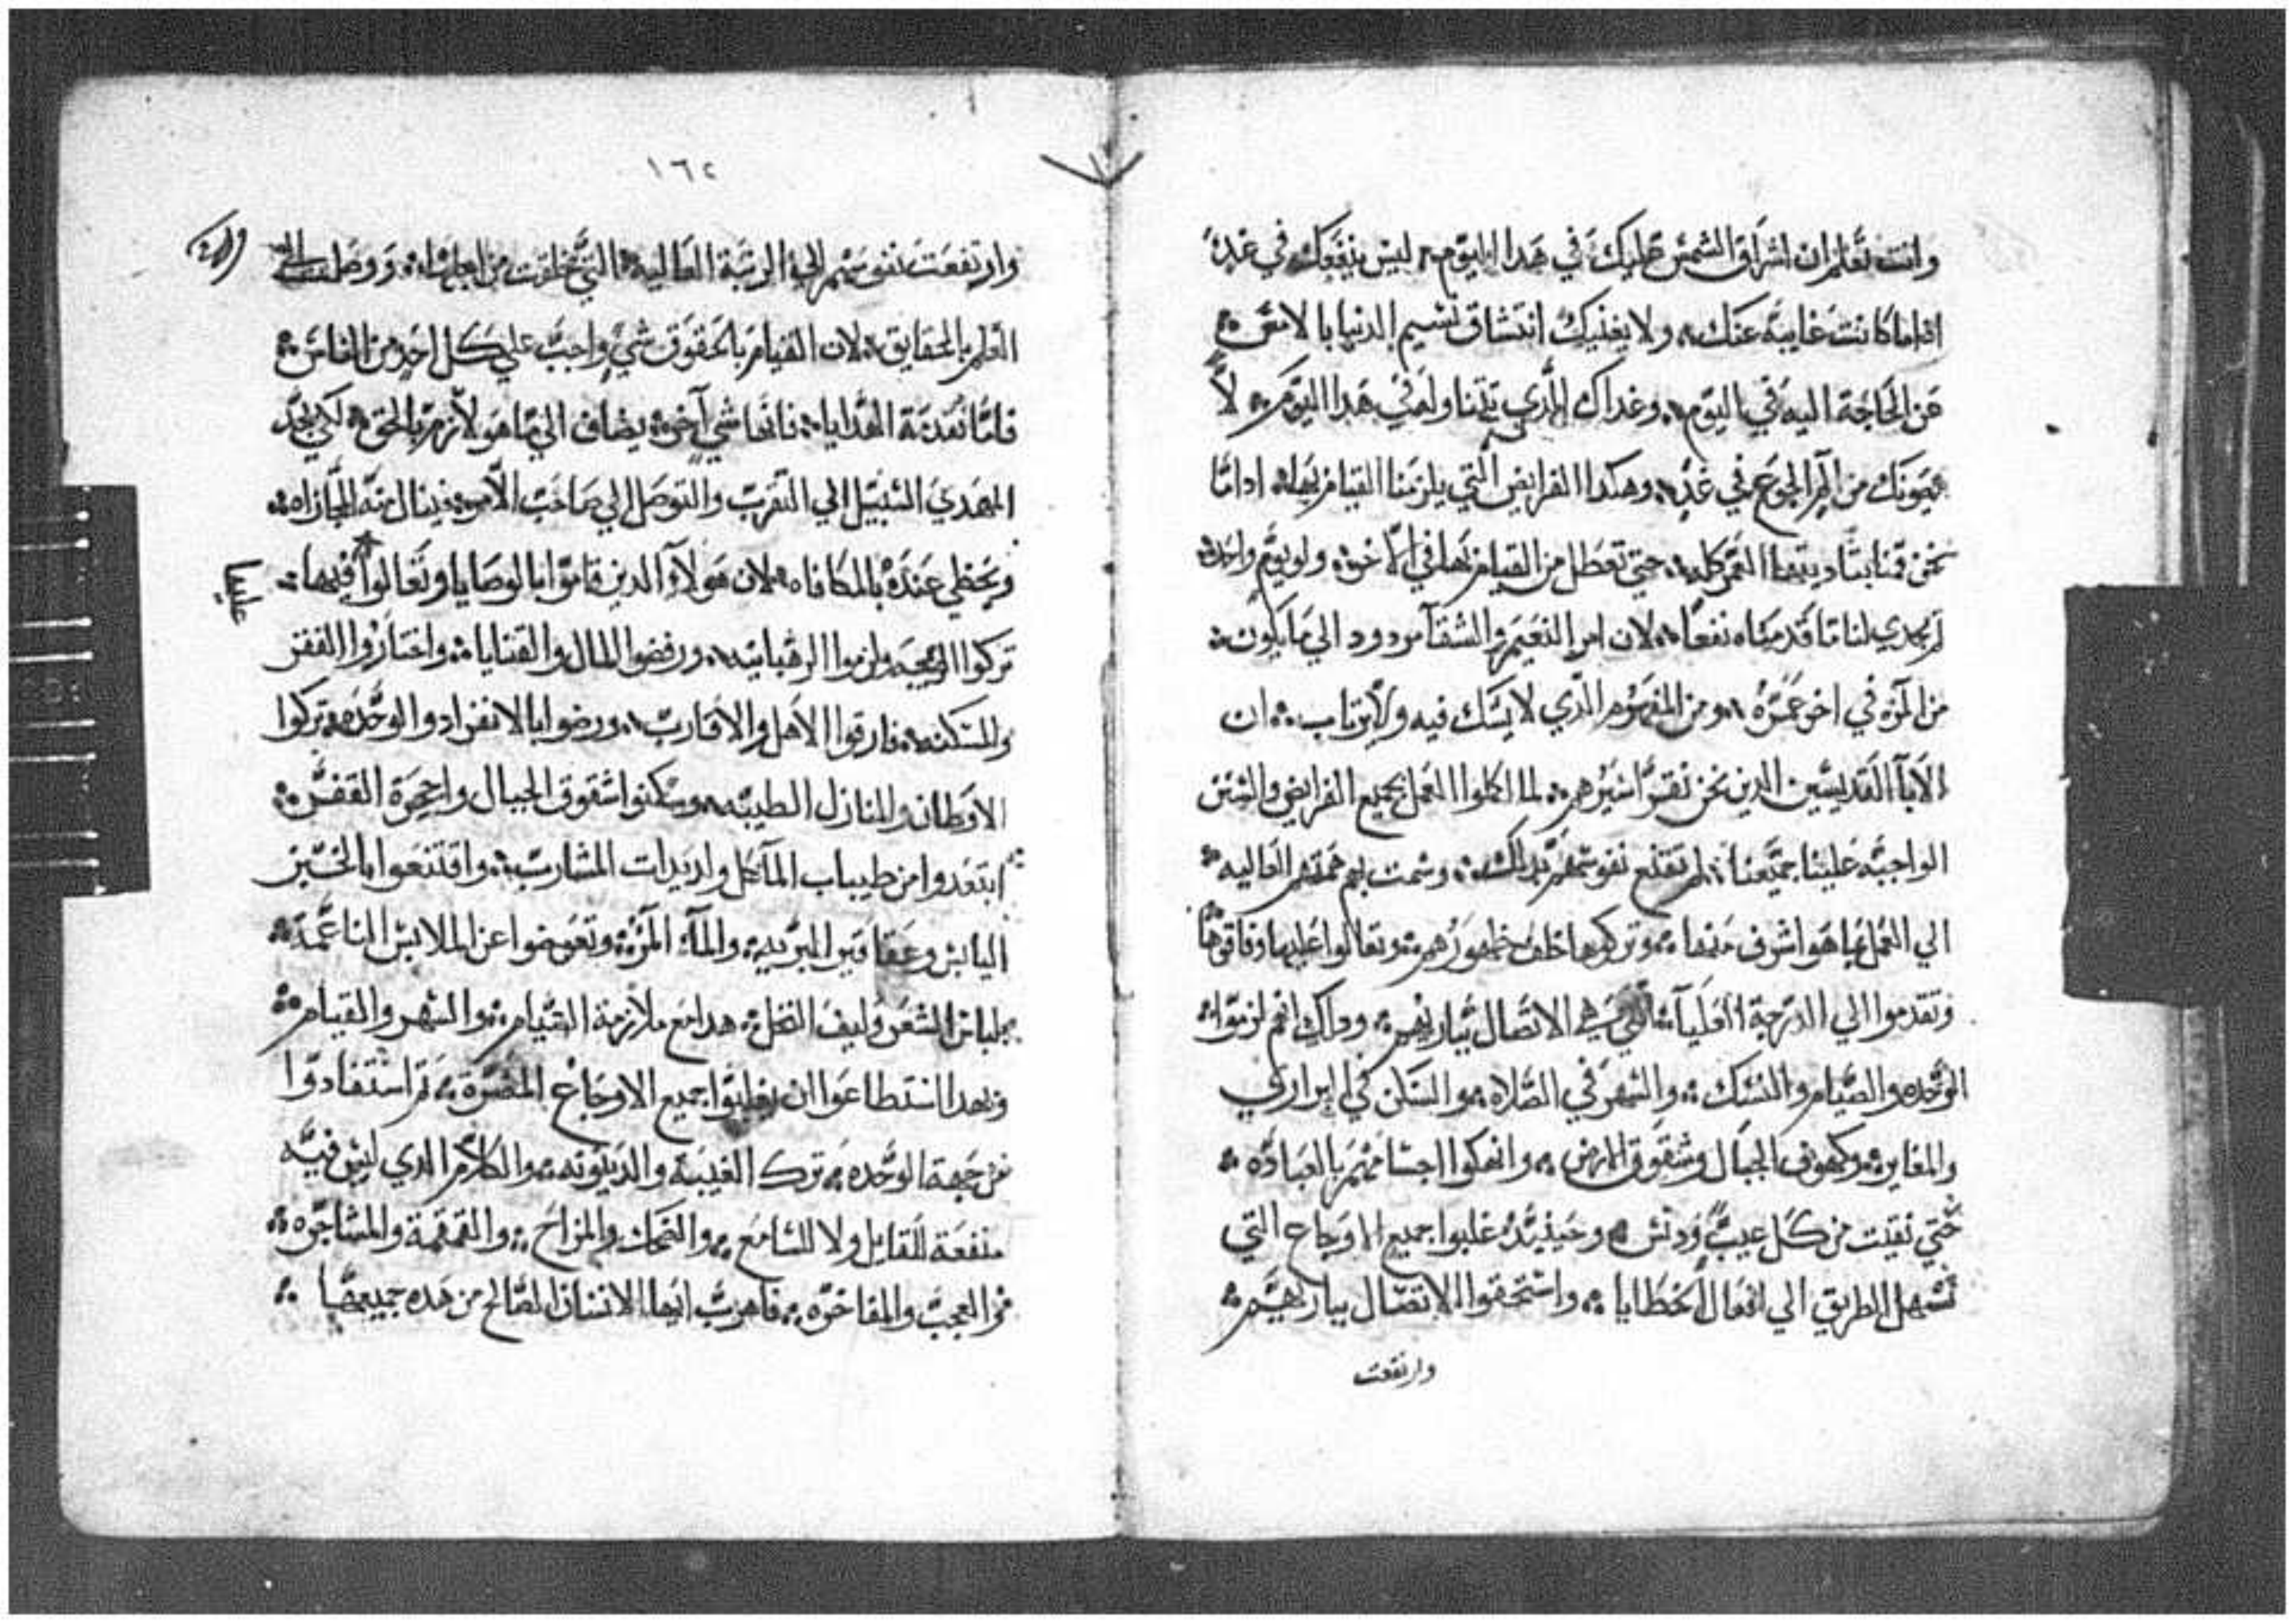 وانت تعلم ان اشراق الشمس عليك في هدا اليوم ليس ينفعك في غد
اداما كانت غايبة عنك ولا يغنيك انتشاق نسيم الدنيا بالامس
عن الحاجة اليه في اليوم وغداك الدي تتناوله في هدا اليوم لا
يصونك من الم الجوع في غد وهكدا الفرايض التي يلزمنا القيام بها ادامّا
نحن قمنا بتاديتها العمر كله حتي تعطل من القيام بها في الاخر ولو يوم واحد
لم يجدي لنا ما قدمناه نفعا لان امر النعيم والشقآ مردود الي ما يكون
من المره في اخر عمره ومن المفهوم الدي لا يشك فيه ولا يرتاب ان
الابآ القديسين الدين نحن نقرا سيرهم لما اكملوا العمل بجميع الفرايض والسنن
الواجبه علينا جميعنا لم تقتنع نفوسهم بدلك وسمت بهم هممهم العاليه
الي العمل بما هو اشرف منها وتركوها خلف ظهورهم وتعالوا عليها وفاقوها
وتقدموا الي الدرجة العليآ التي هي الاتصال بباريهم ودلك انهم لزموا
الوحده والصيام والنسك والسهر في الصلاه والسكن في البراري
والمغاير وكهوف الجبال وشقوق الارض وانهكوا اجسامهم بالعباده
حتي نقيت من كل عيب ودنس وحينيد غلبوا جميع الاوجاع التي
تسهل الطريق الي افعال الخطايا واستحقوا الاتصال بباريهم
وارتفعت
١٦٢
وارتفعت نفوسهم الي الرتبة العاليه التي خلقت من اجلها ووصلت الي
العلم بالحقايق لان القيام بالحقوق شي واجب علي كل احد من الناس
فامّا تقدمة الهدايا فانها شي آخر يضاف الي ما هو لازم بالحق لكي يجد
المهدي السبيل الي التقرب والتوصل الي صاحب الامر فينال منه المجازاه
ويحظي عنده بالمكافاه لان هولآء الدين قاموا بالوصايا وتعالوا فيها
عليها
تركوا الزيجه ولزموا الرهبانيه ورفضوا المال والقنايا واختاروا الفقر
والمسكنه فارقوا الاهل والاقارب ورضوا بالانفراد والوحده تركوا
الاوطان والمنازل الطيبه وسكنوا شقوق الجبال واجحرة القفر
ابتعدوا من طيبات المآكل ولديدات المشارب واقتنعوا بالخبز
اليابس وعقاقير البريه والمآء المر وتعوضوا عن الملابس الناعمة
بلباس الشعر وليف النخل هدا مع ملازمة الصيام والسهر والقيام
وبهدا استطاعوا ان يغلبوا جميع الاوجاع المضرة تم استفادوا
من جهة الوحده ترك الغيبة والدينونه والكلام الدي ليس فيه
منفعة للقايل ولا للسامع والضحك والمزاح والقهقهة والمشاجره
والعجب والمفاخره فاهرب ايها الانسان الصالح من هده جميعها